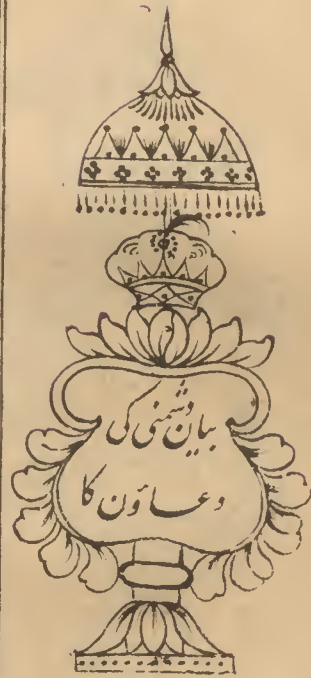 بیان دشمنی کی
دعاؤن کا